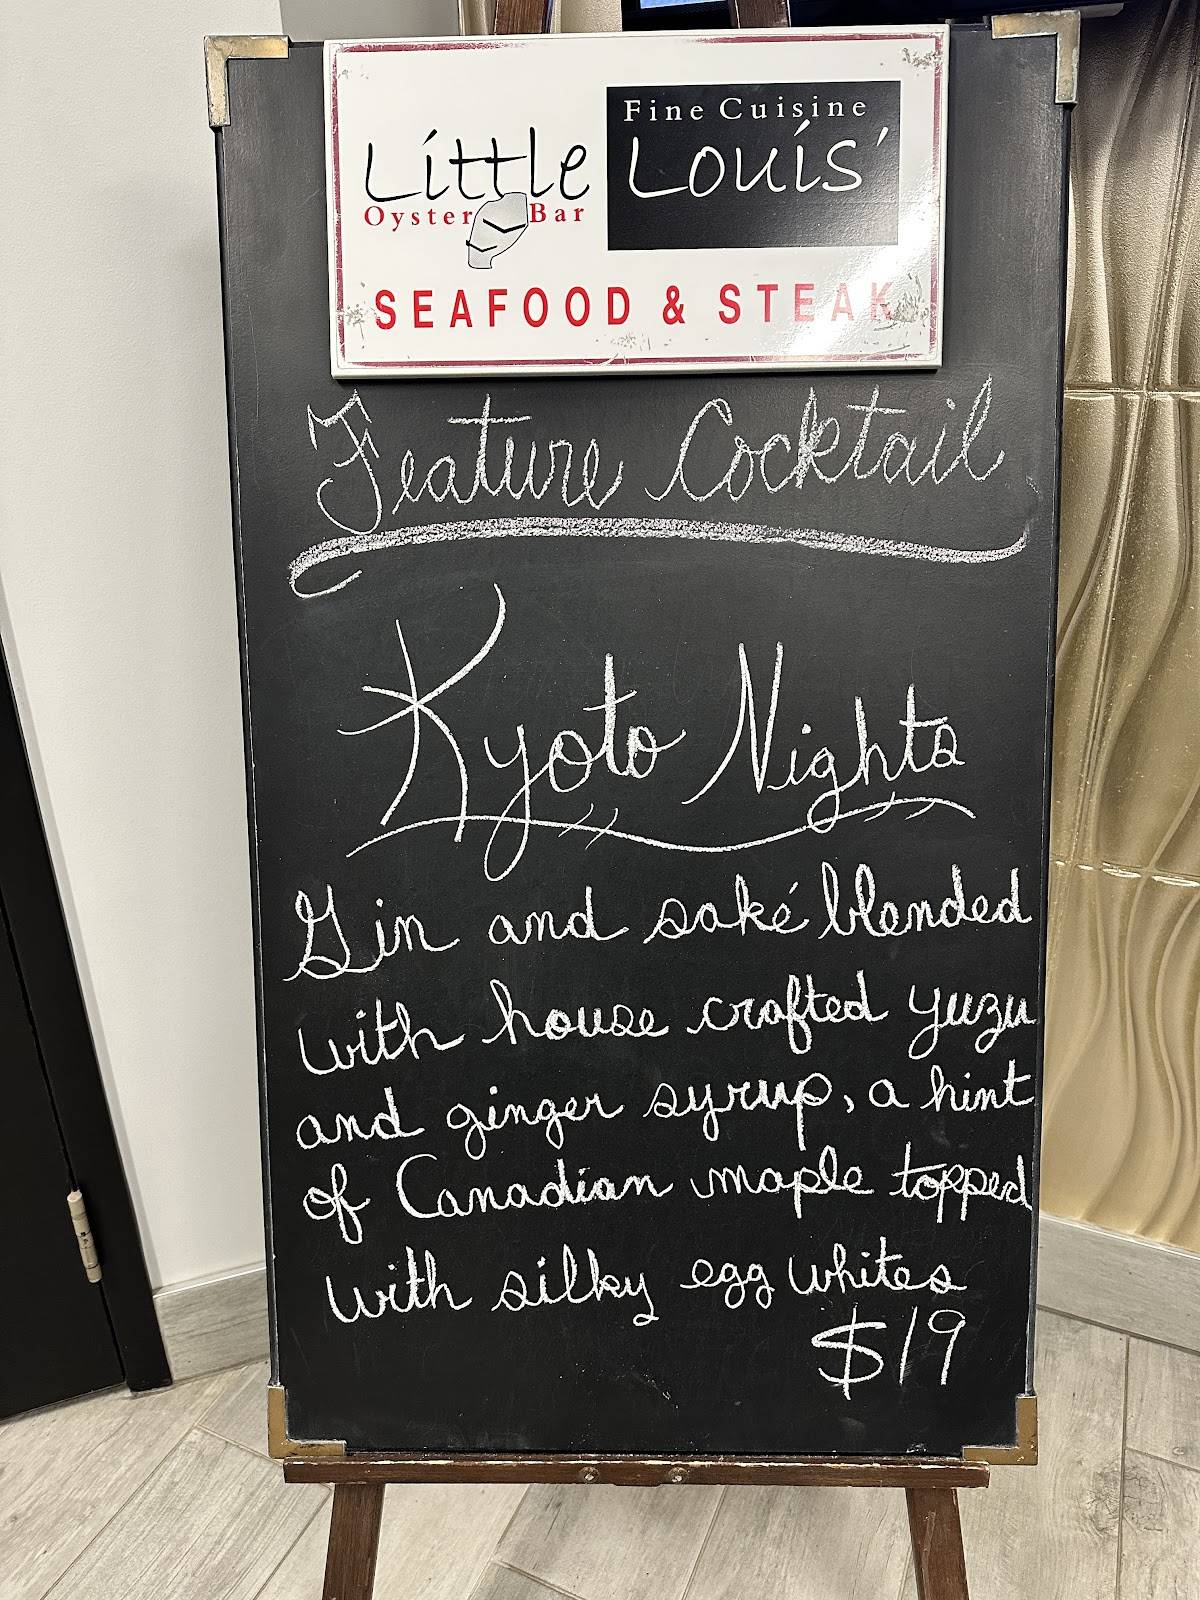 Fine Cuisine
Little Louis'
Oyster Bar
SEAFOOD & STEAK
Feature Cocktail
Kyoto Nights
Gin and saké blended
with house crafted yuzu
and ginger syrup, a hint
of Canadian maple topped
with silky egg whites
$19